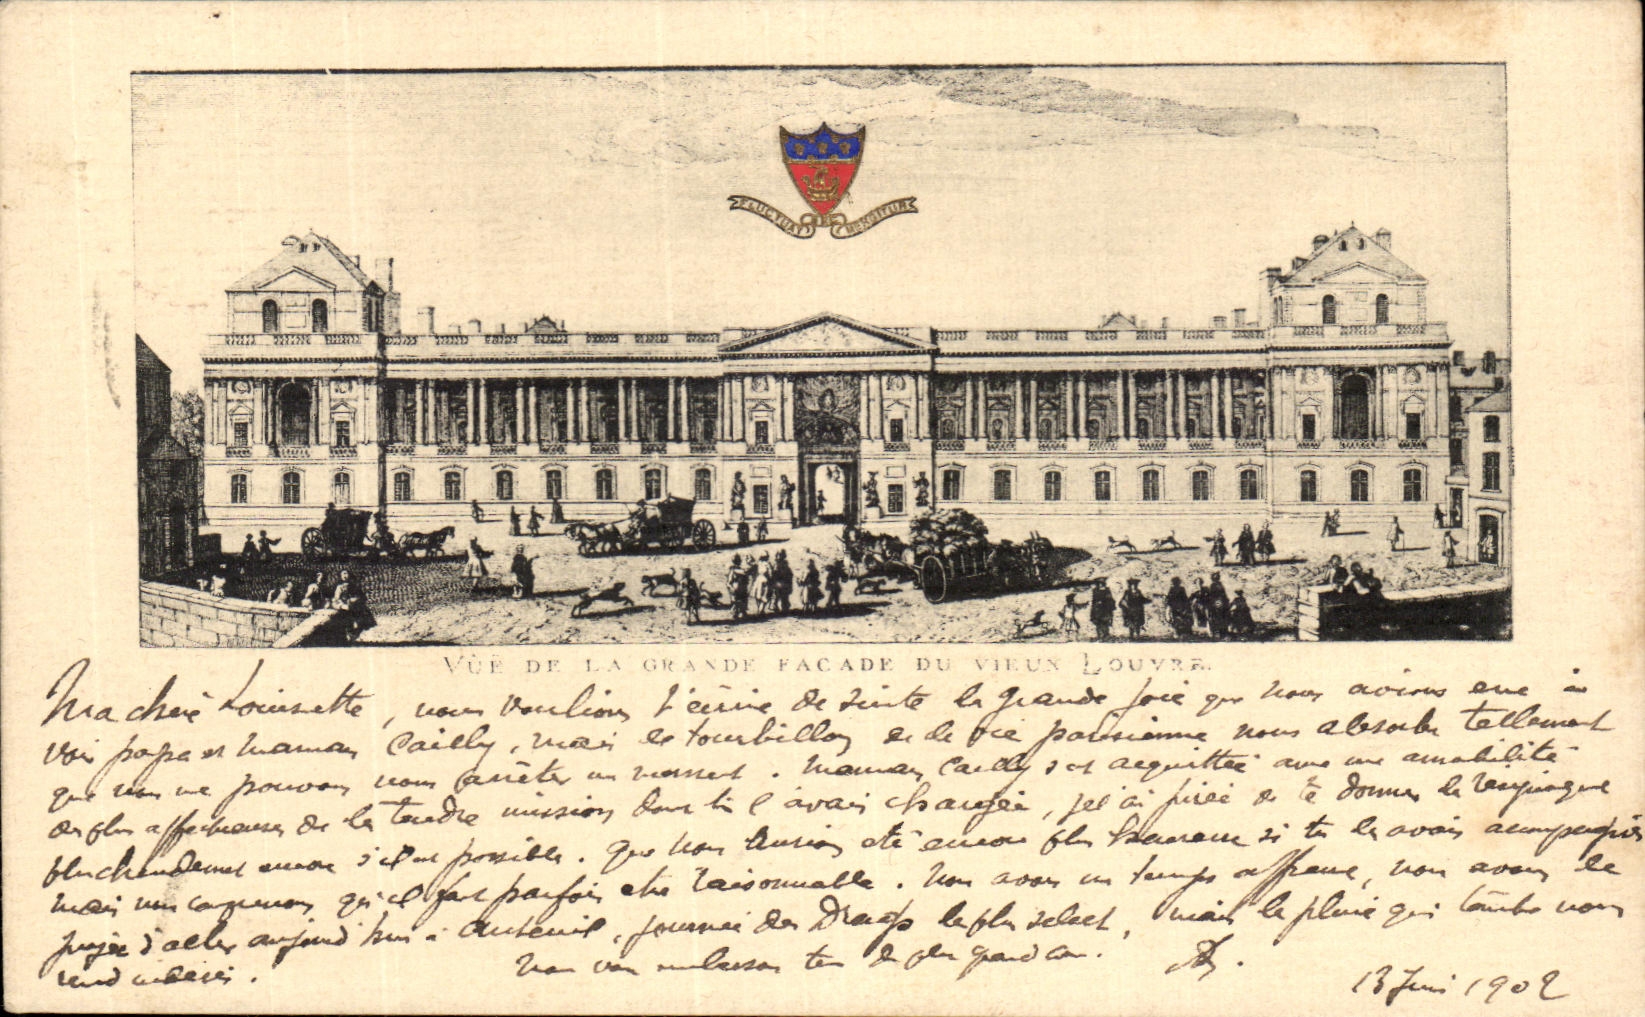 FLUCTUAT NEC MERGITUR
VÜE DE LA GRANDE FACADE DU VIEUX LOUVRE.
Ma chère Louisette, nous voulions t'écrire de suite la grande joie que nous avions eue à
voir papa et maman Cailly, mais le tourbillon de la vie parisienne nous absorbe tellement
que nous ne pouvons nous arrêter un moment. Maman Cailly s'est acquittée avec une amabilité
des plus affectueuses de la tendre mission dont tu l'avais chargée, je l'ai priée de te donner la
plus chaudement encore s'il est possible. Que nous aurions été encore plus heureux si tu les avais accompagnés
mais nous comprenons qu'il faut parfois être raisonnable. Nous avons un temps affreux, nous avons le
projet d'aller aujourd'hui à Auteuil, journée des Drags la plus select, mais la pluie qui tombe nous
rend indécis.
Nous vous embrassons tous de plus grand cœur.
13 Juin 1902